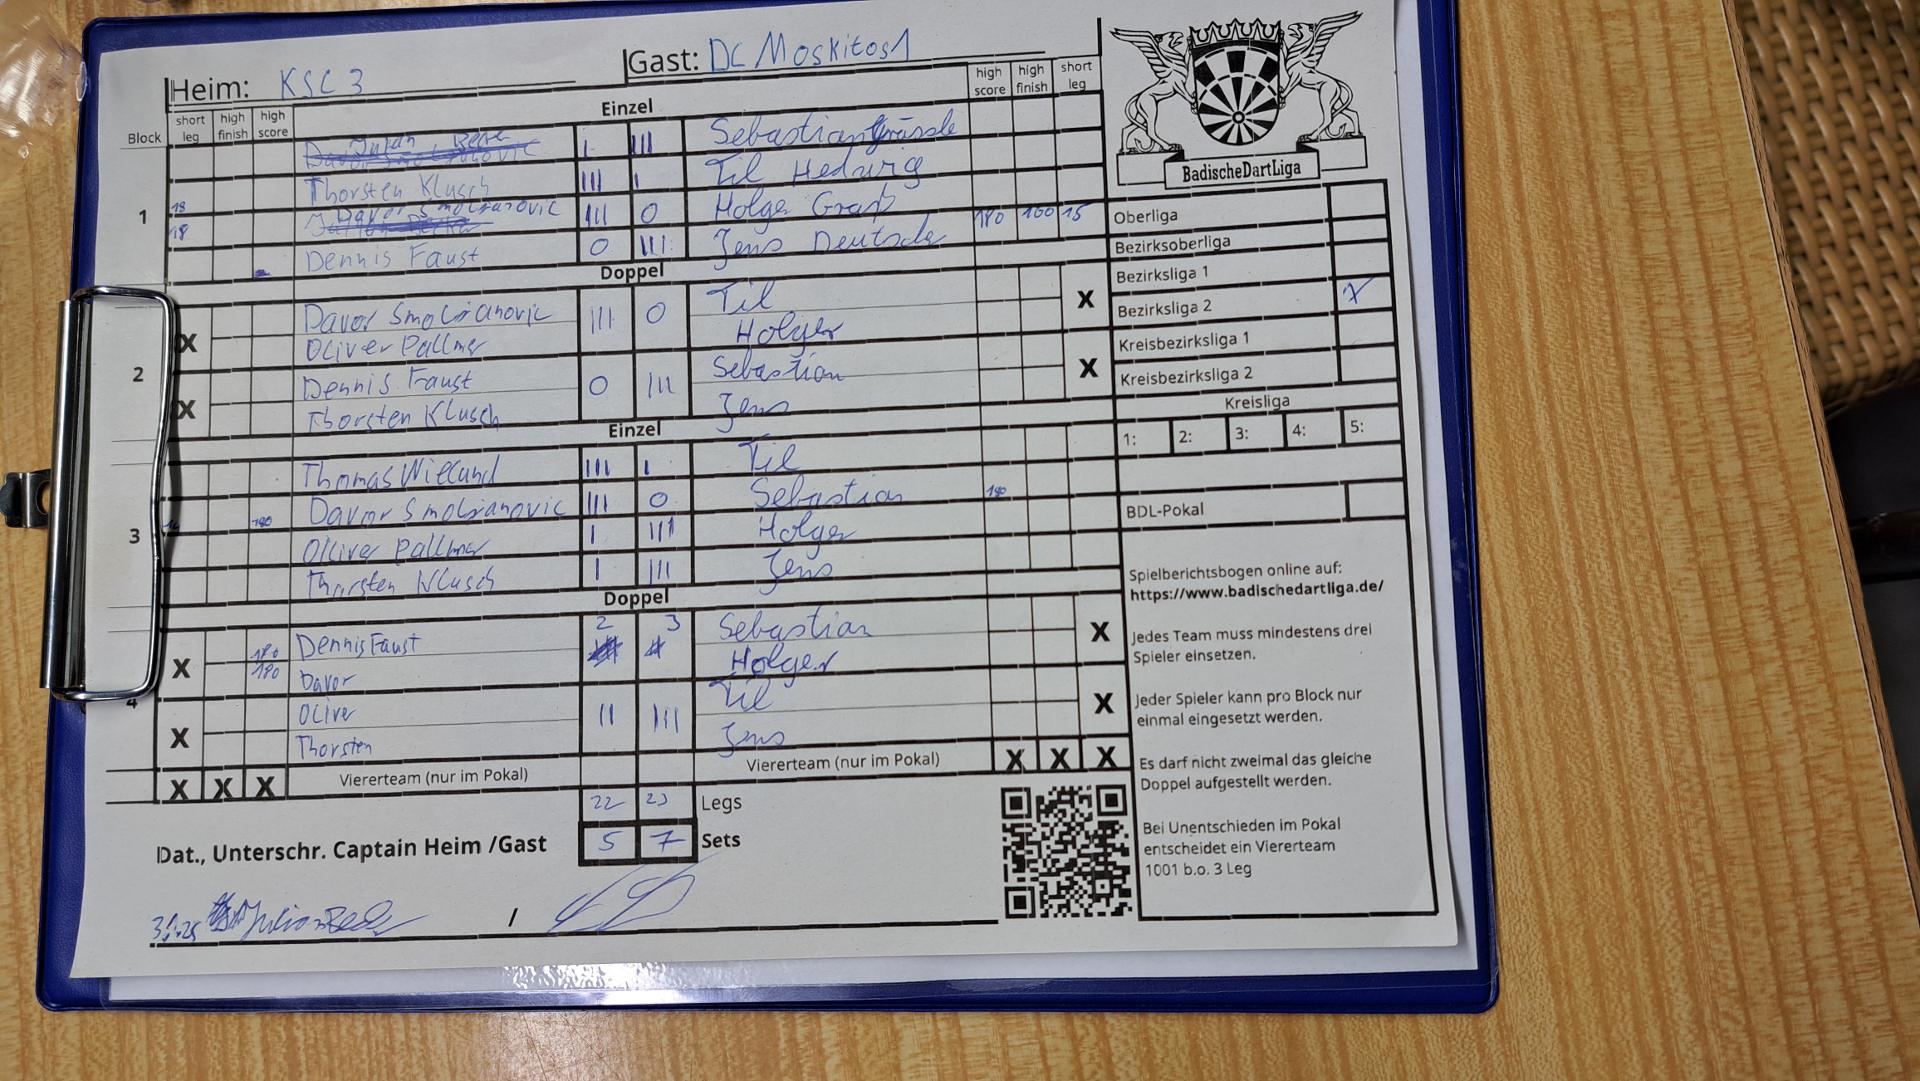 Heim: KSC 3 Gast: DC Moskitos 1
Block short leg high finish high score Einzel high score high finish short leg
Julian I III Sebastian
Thorsten Klusch III I Til Hedwig
1 18 Davor Smolianovic III 0 Holger
18
Dennis Faust 0 III Jens Deutsche 180 160 15
Doppel
2 X Davor Smolianovic III 0 Til X
Oliver Pallmer Holger
X Dennis Faust 0 III Sebastian X
Thorsten Klusch Jens
Einzel
3 Thomas Wieland III I Til
180 Davor Smolianovic III 0 Sebastian 180
Olliver Pallmer I III Holger
Thorsten Klusch I III Jens
Doppel
4 X 180 Dennis Faust 2 3 Sebastian X
180 Davor Holger
X Oliver II III Til X
Thorsten Jens
X X X Viererteam (nur im Pokal) Viererteam (nur im Pokal) X X X
22 23 Legs
Dat., Unterschr. Captain Heim /Gast 5 7 Sets
/
BadischeDartLiga
Oberliga
Bezirksoberliga
Bezirksliga 1
Bezirksliga 2 X
Kreisbezirksliga 1
Kreisbezirksliga 2
Kreisliga
1: 2: 3: 4: 5:
BDL-Pokal
Spielberichtsbogen online auf:
https://www.badischedartliga.de/
Jedes Team muss mindestens drei
Spieler einsetzen.
Jeder Spieler kann pro Block nur
einmal eingesetzt werden.
Es darf nicht zweimal das gleiche
Doppel aufgestellt werden.
Bei Unentschieden im Pokal
entscheidet ein Viererteam
1001 b.o. 3 Leg